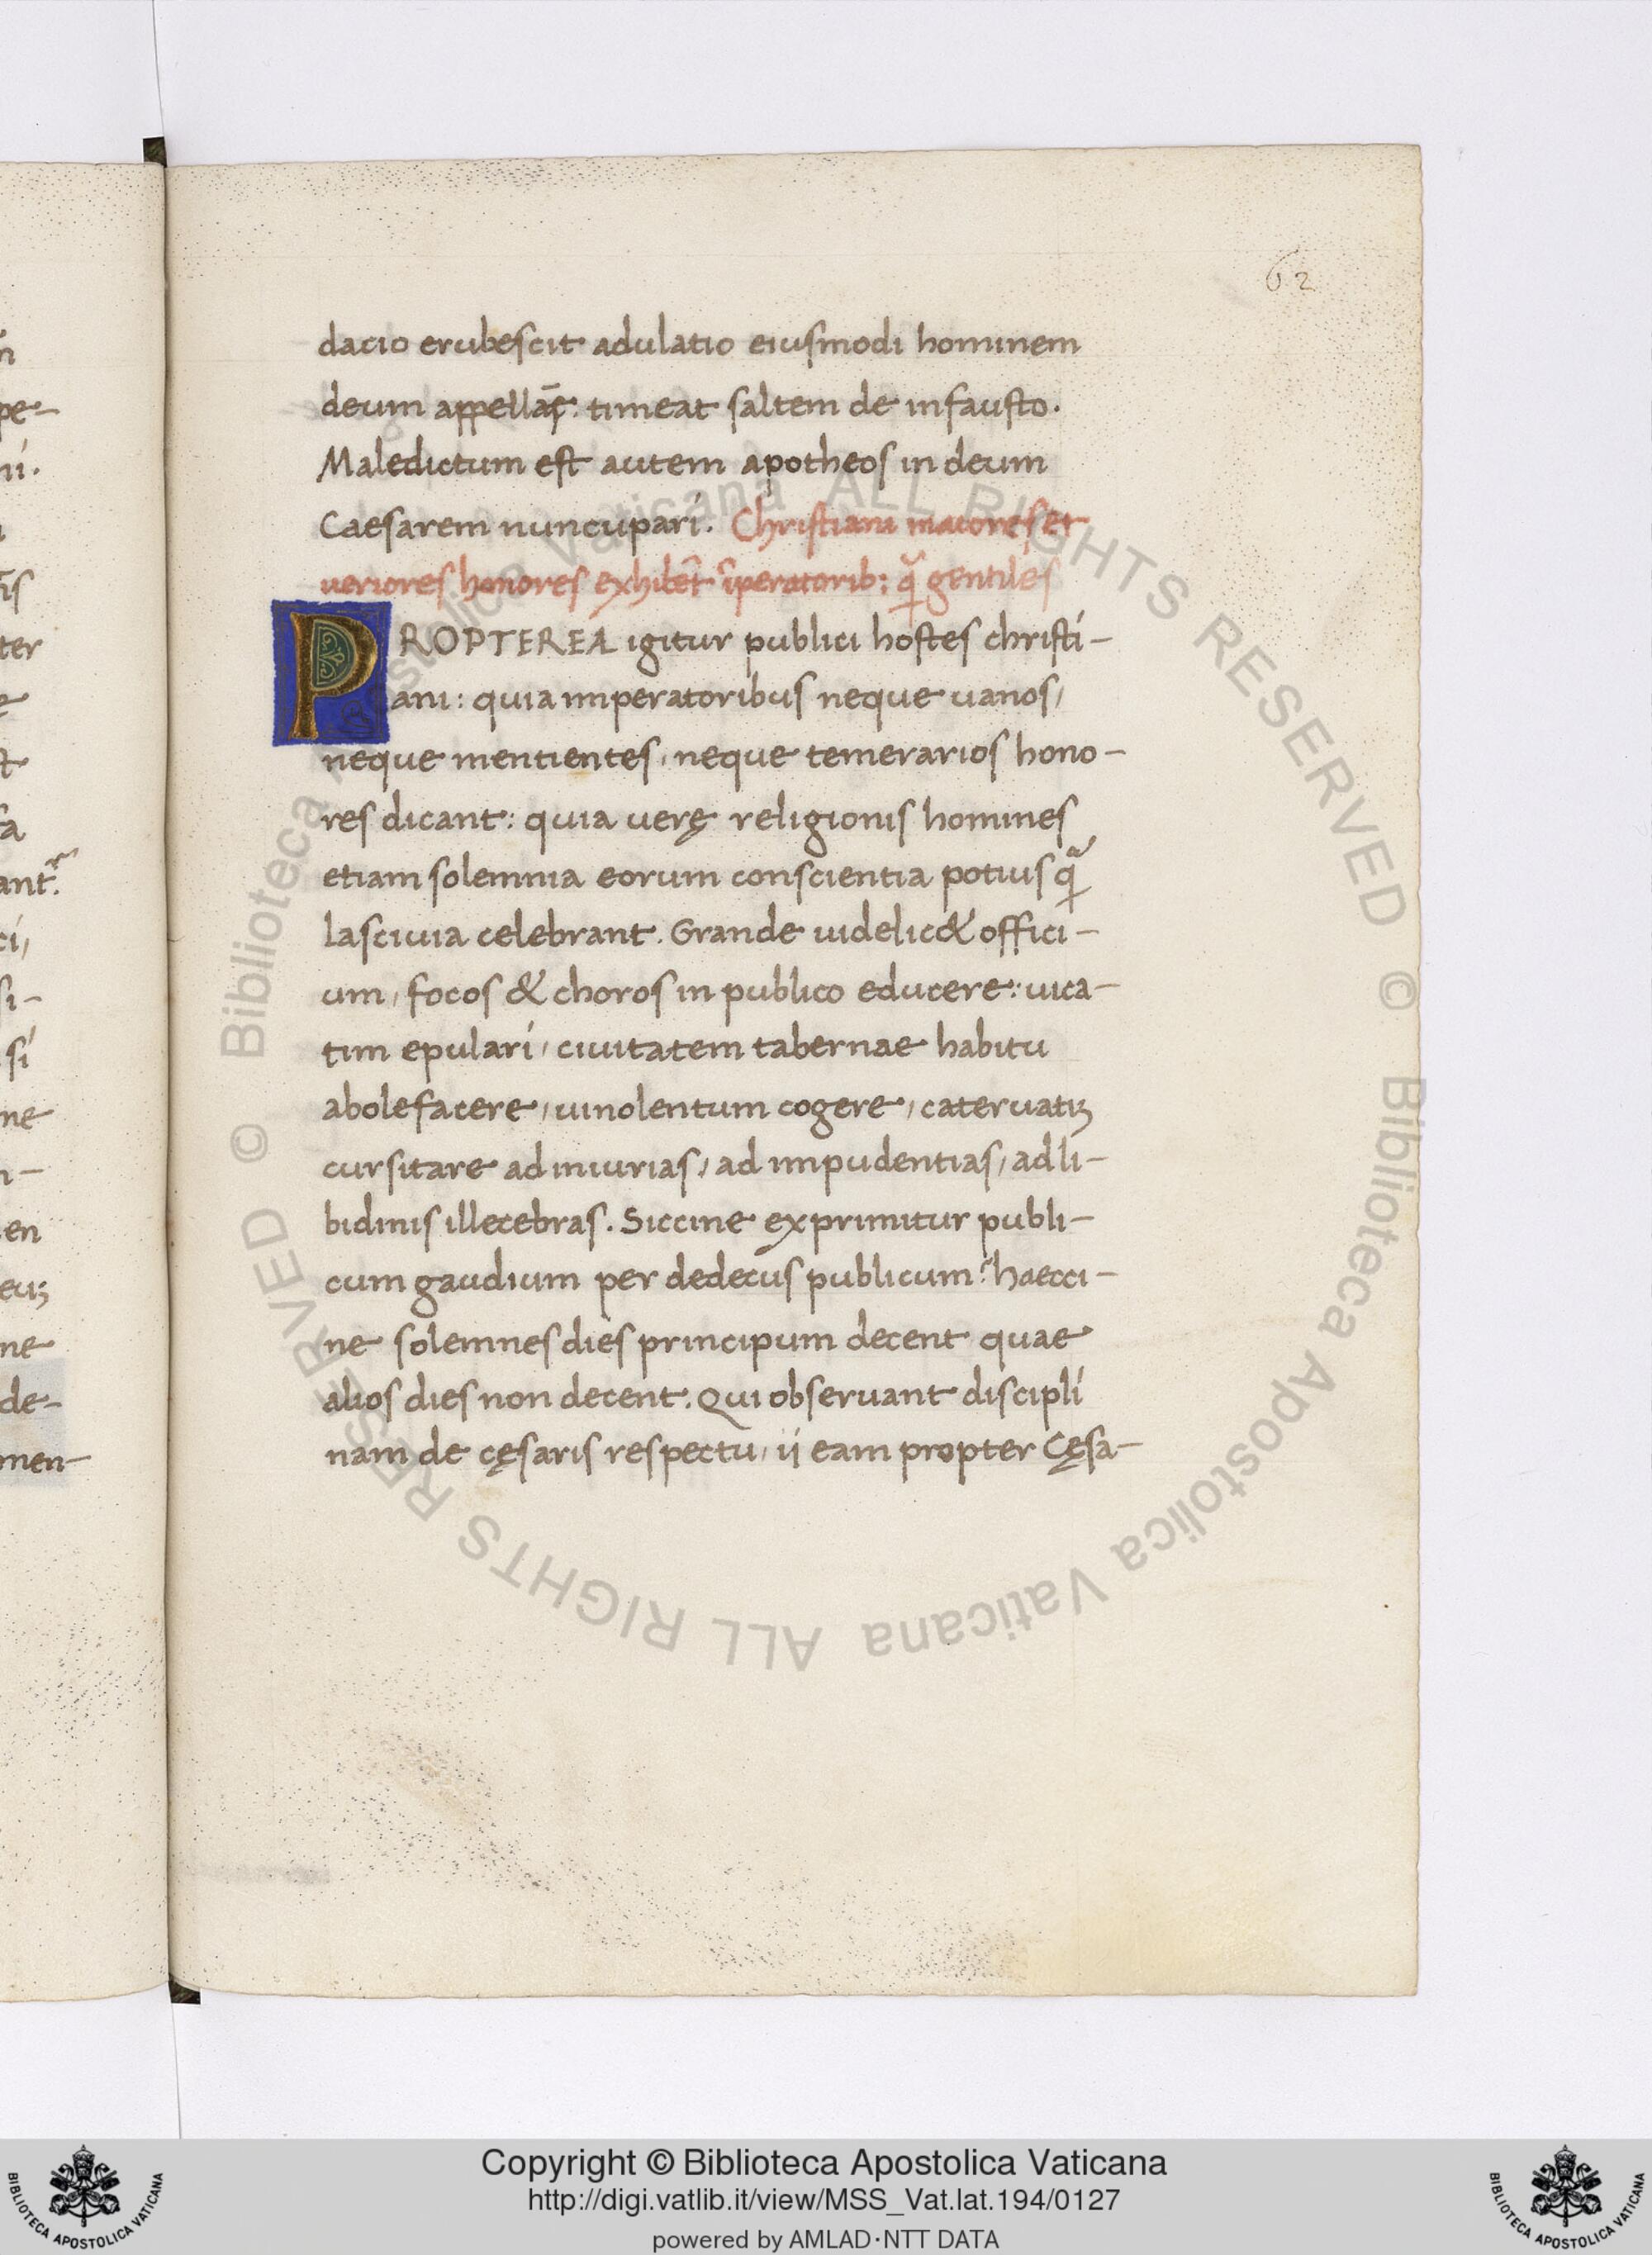 62
dacio erubescit adulatio eiusmodi hominem
deum appellās: timeat saltem de infausto.
Maledictum est autem apotheos in deum
Caesarem nuncupari. Christiani maiores et
veriores honores exhibēt īperatorib: q̃ gentiles
PROPTEREA igitur publici hostes christi-
ani: quia imperatoribus neque vanos,
neque mentientes, neque temerarios hono-
res dicant: quia verę religionis homines
etiam solemnia eorum conscientia potius q̃
lascivia celebrant. Grande videlic& offici-
um, focos & choros in publico educere: vica-
tim epulari, civitatem tabernae habitu
abolefacere, vinolentum cogere, catervatiʒ
cursitare ad iniurias, ad impudentias, ad li-
bidinis illecebras. Siccine exprimitur publi-
cum gaudium per dedecus publicum? haecci-
ne solemnes dies principum decent quae
alios dies non decent. Qui observant discipli
nam de cęsaris respectu, ij eam propter Cęsa-
pe-
ni.
ter
ant.
ci,
si-
si
ne
en
ne
de-
men-
© Biblioteca Apostolica Vaticana ALL RIGHTS RESERVED © Biblioteca Apostolica Vaticana ALL RIGHTS RESERVED
BIBLIOTECA APOSTOLICA VATICANA
Copyright © Biblioteca Apostolica Vaticana
http://digi.vatlib.it/view/MSS_Vat.lat.194/0127
powered by AMLAD·NTT DATA
BIBLIOTECA APOSTOLICA VATICANA